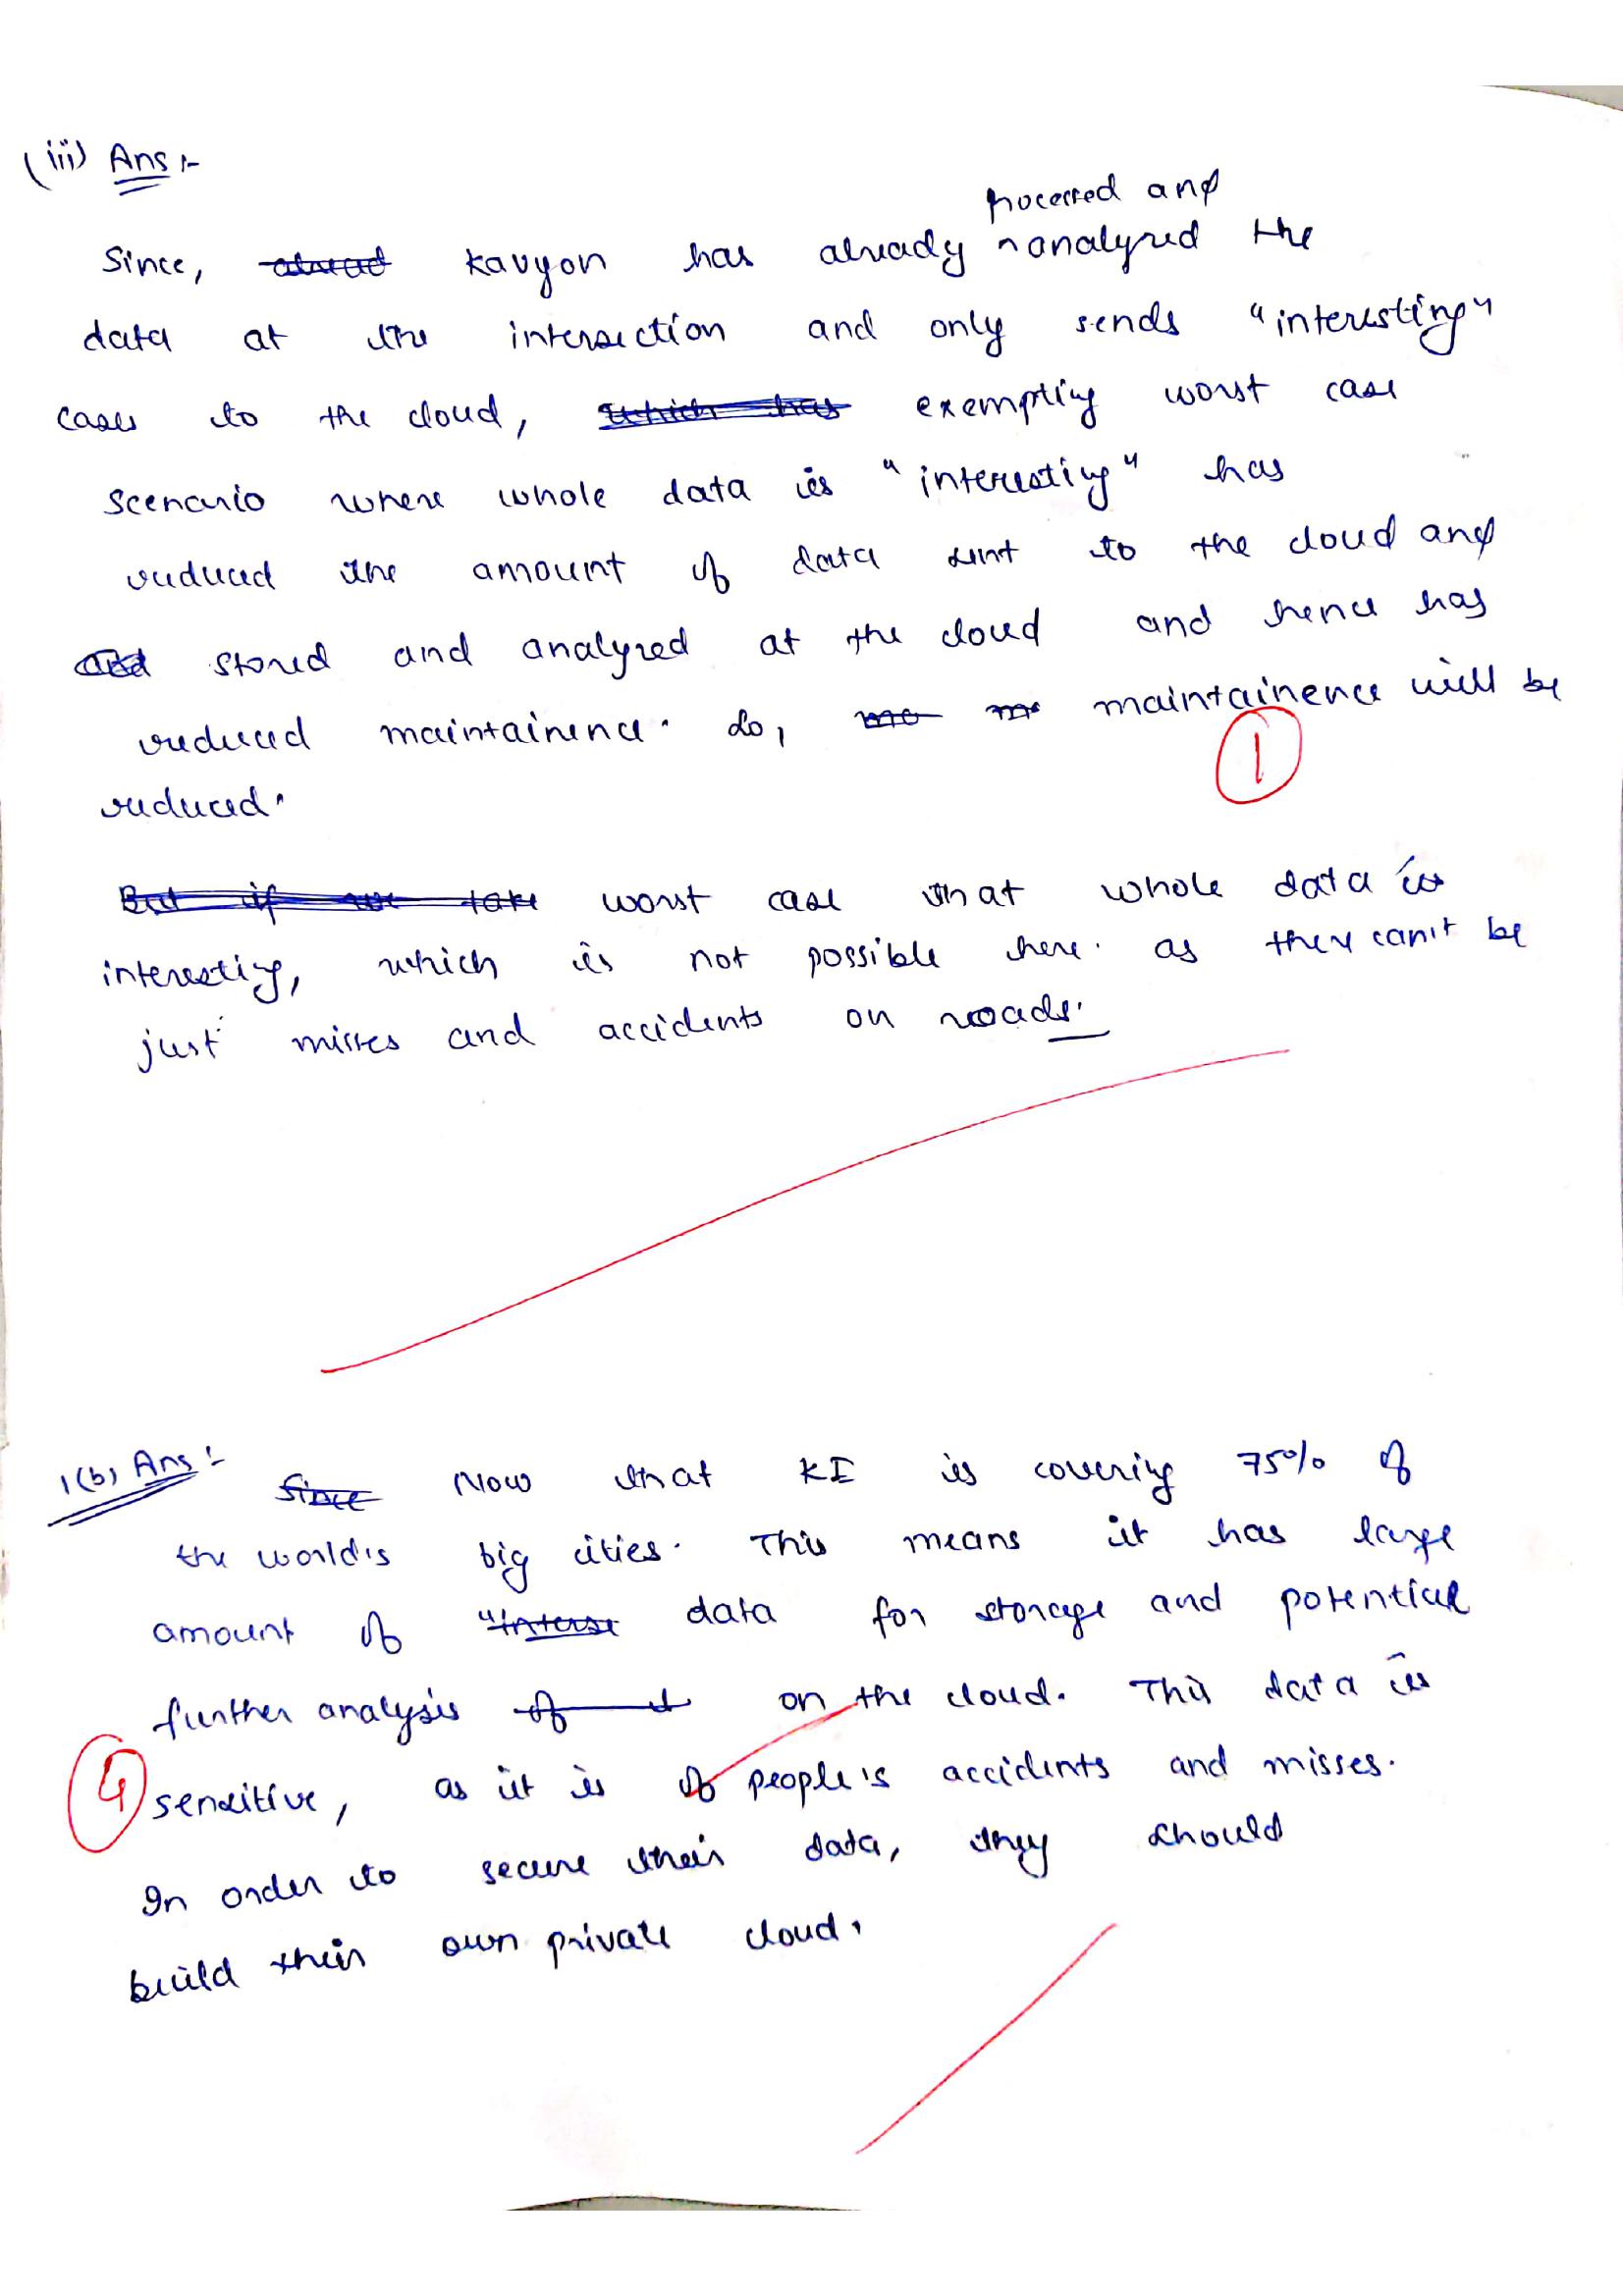 (iii) Ans :-
processed and
Since, kavyon has already ^ analyzed the
data at the intersection and only sends "interesting"
cases to the cloud, which has exempting worst case
scenario where whole data is "interesting" has
reduced the amount of data sent to the cloud and
and stored and analyzed at the cloud and hence has
reduced maintainence. So, ma m maintainence will be
1
reduced.
But if we take worst case that whole data is
interesting, which is not possible here. as there can't be
just misses and accidents on roads.
1(b) Ans :-
Since Now that KI is covering 75% of
the world's big cities. This means it has large
amount of "interse data for storage and potential
further analysis of on the cloud. This data is
4
sensitive, as it is of people's accidents and misses.
In order to secure their data, they should
build their own private cloud.